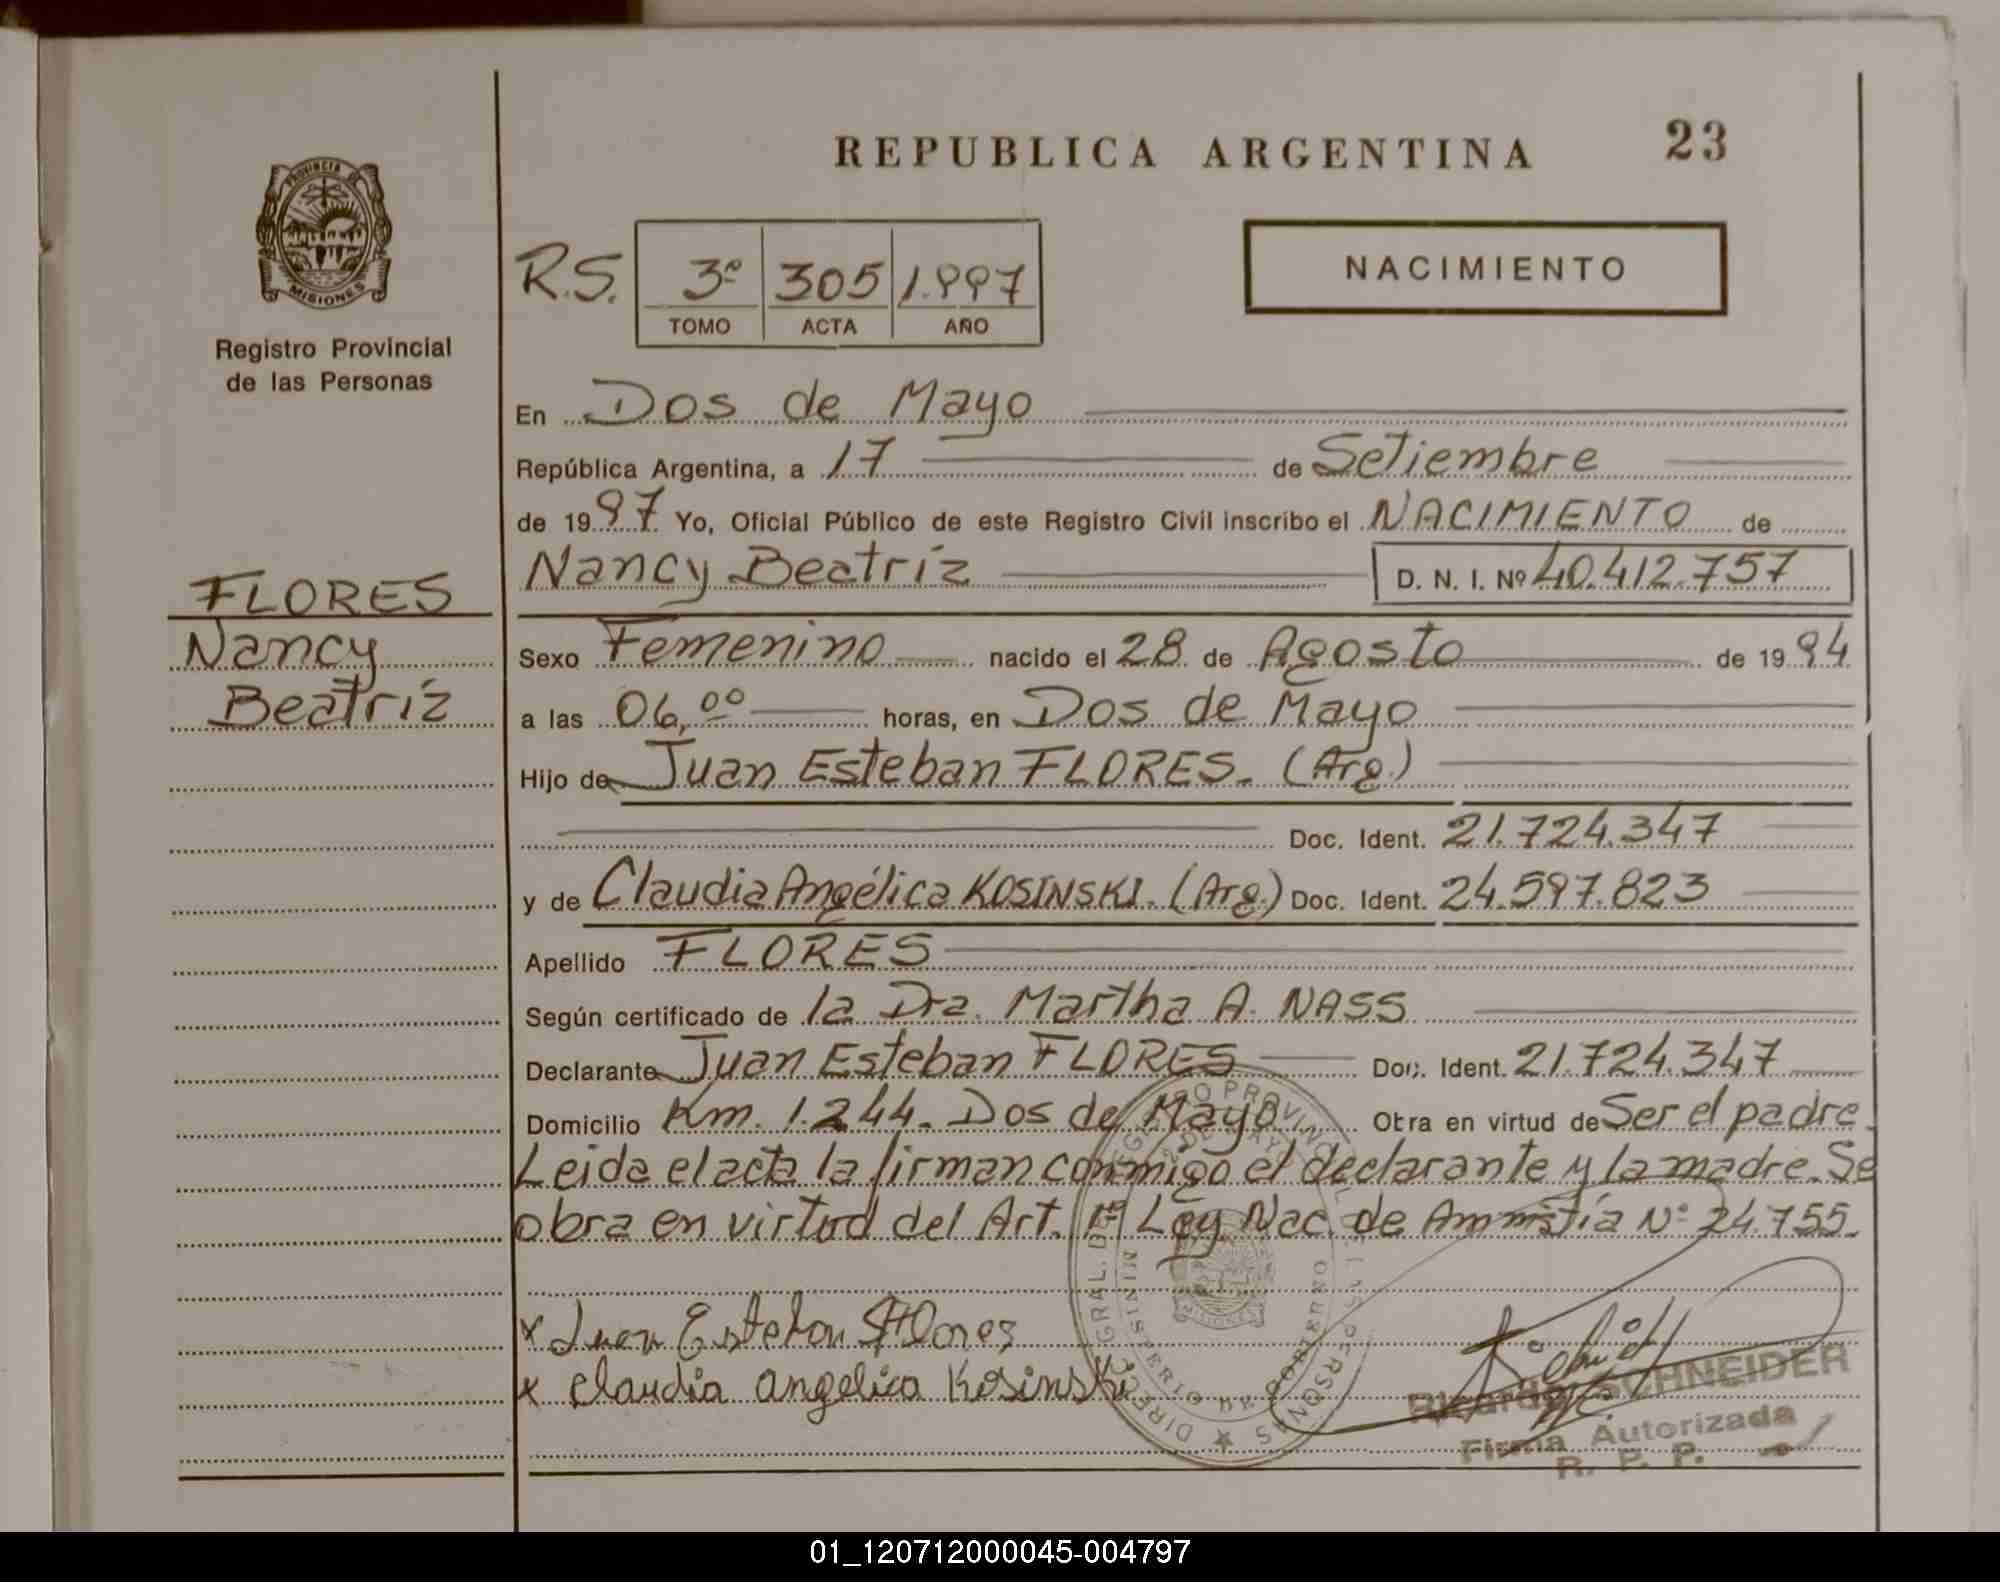 REPUBLICA ARGENTINA 23
PROVINCIA DE
MISIONES
Registro Provincial
de las Personas
R.S. 3º 305 1.997
TOMO ACTA AÑO
NACIMIENTO
En Dos de Mayo
República Argentina, a 17 de Setiembre
de 1997 Yo, Oficial Público de este Registro Civil inscribo el NACIMIENTO de
Nancy Beatríz D. N. I. Nº 40.412.757
FLORES
Nancy
Beatríz
Sexo Femenino nacido el 28 de Agosto de 1994
a las 06,ºº horas, en Dos de Mayo
Hijo de Juan Esteban FLORES. (Arg.)
Doc. Ident. 21.724.347
y de Claudia Angélica KOSINSKI. (Arg.) Doc. Ident. 24.597.823
Apellido FLORES
Según certificado de la Dra. Martha A. NASS
Declarante Juan Esteban FLORES Doc. Ident. 21.724.347
Domicilio Km. 1.244. Dos de Mayo Obra en virtud de Ser el padre.
Leida el acta la firman conmigo el declarante y la madre. Se
obra en virtud del Art. 1º Ley Nac. de Amnistía Nº 24.755.
x Juan Esteban Flores
x Claudia angelica Kosinski
Ricardo SCHNEIDER
Firma Autorizada
R. P. P.
01_120712000045-004797